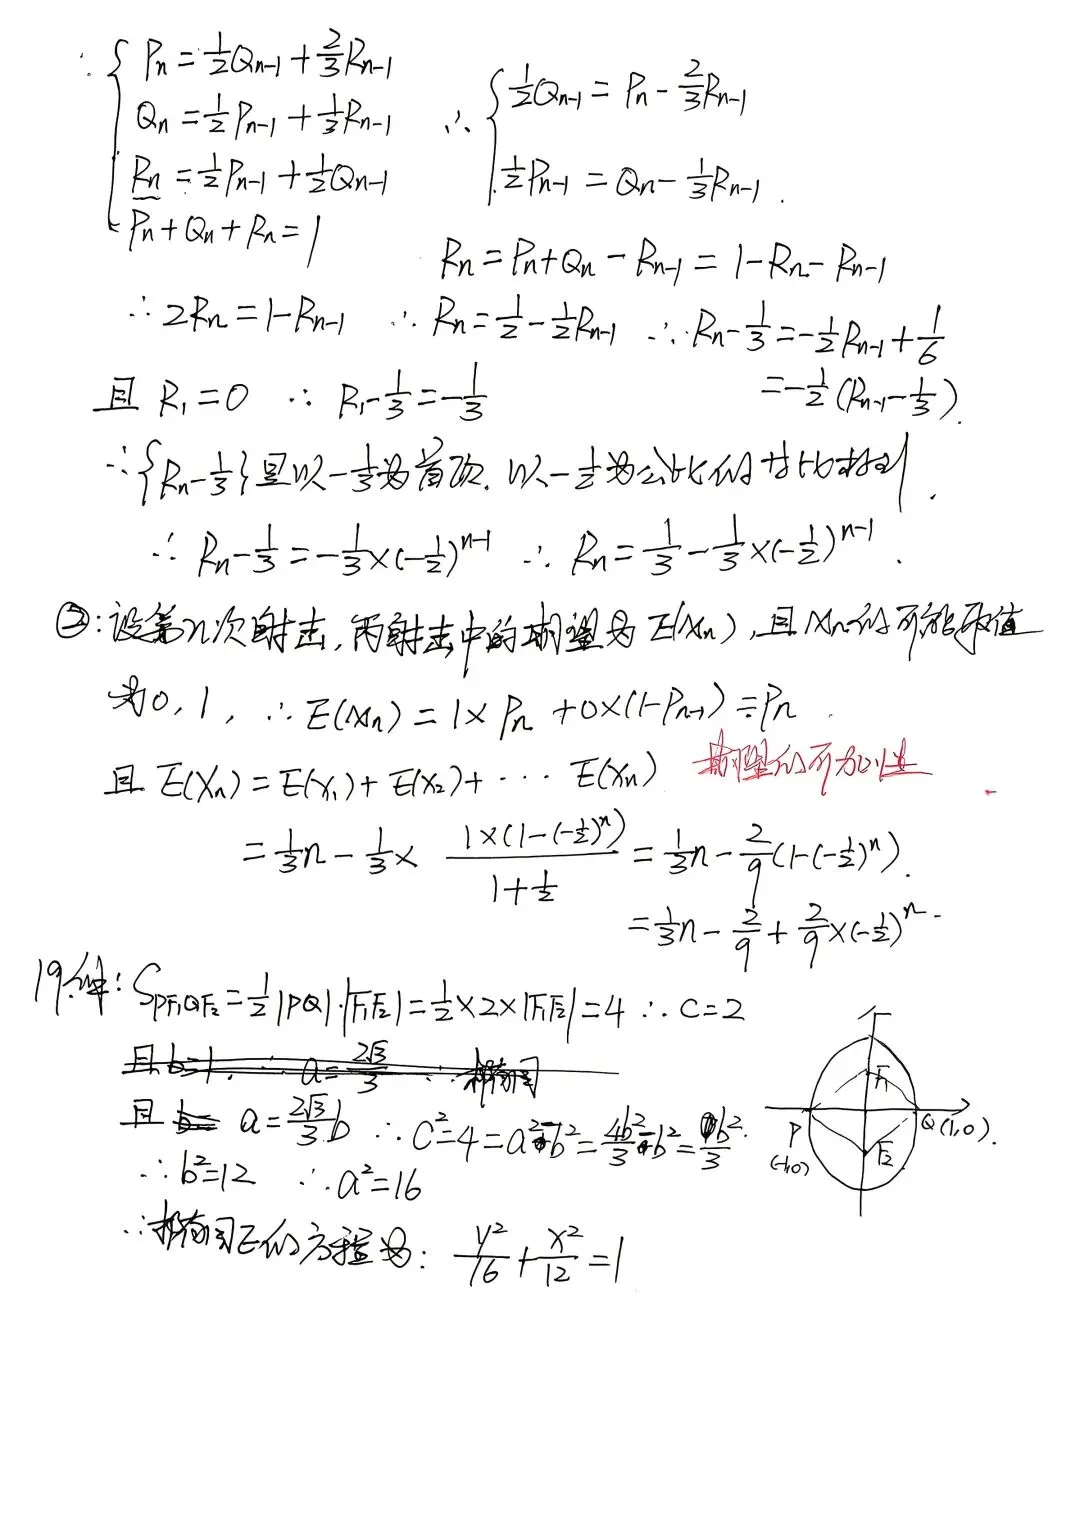 ∴ { Pn = 1/2 Qn-1 + 2/3 Rn-1
Qn = 1/2 Pn-1 + 1/3 Rn-1
Rn = 1/2 Pn-1 + 1/2 Qn-1
Pn + Qn + Rn = 1
∴ { 1/2 Qn-1 = Pn - 2/3 Rn-1
1/2 Pn-1 = Qn - 1/3 Rn-1.
Rn = Pn + Qn - Rn-1 = 1 - Rn - Rn-1
∴ 2Rn = 1 - Rn-1 ∴ Rn = 1/2 - 1/2 Rn-1 ∴ Rn - 1/3 = -1/2 Rn-1 + 1/6
= -1/2 (Rn-1 - 1/3).
且 R1 = 0 ∴ R1 - 1/3 = -1/3
∴ {Rn - 1/3} 是以 -1/3 为首项. 以 -1/2 为公比的等比数列.
∴ Rn - 1/3 = -1/3 × (-1/2)^(n-1) ∴ Rn = 1/3 - 1/3 × (-1/2)^(n-1).
②: 设第n次射击, 丙射击中的期望为 E(Xn), 且 Xn 的可能取值
为 0, 1, ∴ E(Xn) = 1 × Pn + 0 × (1 - Pn-1) = Pn.
且 E(Xn) = E(X1) + E(X2) + ··· E(Xn) 期望的可加性
= 1/3 n - 1/3 × (1×(1-(-1/2)^n))/(1+1/2) = 1/3 n - 2/9 (1-(-1/2)^n).
= 1/3 n - 2/9 + 2/9 × (-1/2)^n.
19.解: S_PF1QF2 = 1/2 |PQ|·|F1F2| = 1/2 × 2 × |F1F2| = 4 ∴ c = 2
且 a = 2√3/3 b ∴ c² = 4 = a² - b² = 4b²/3 - b² = b²/3
∴ b² = 12 ∴ a² = 16
∴ 椭圆E的方程为: y²/16 + x²/12 = 1
F1
P
(-1,0)
Q(1,0).
F2